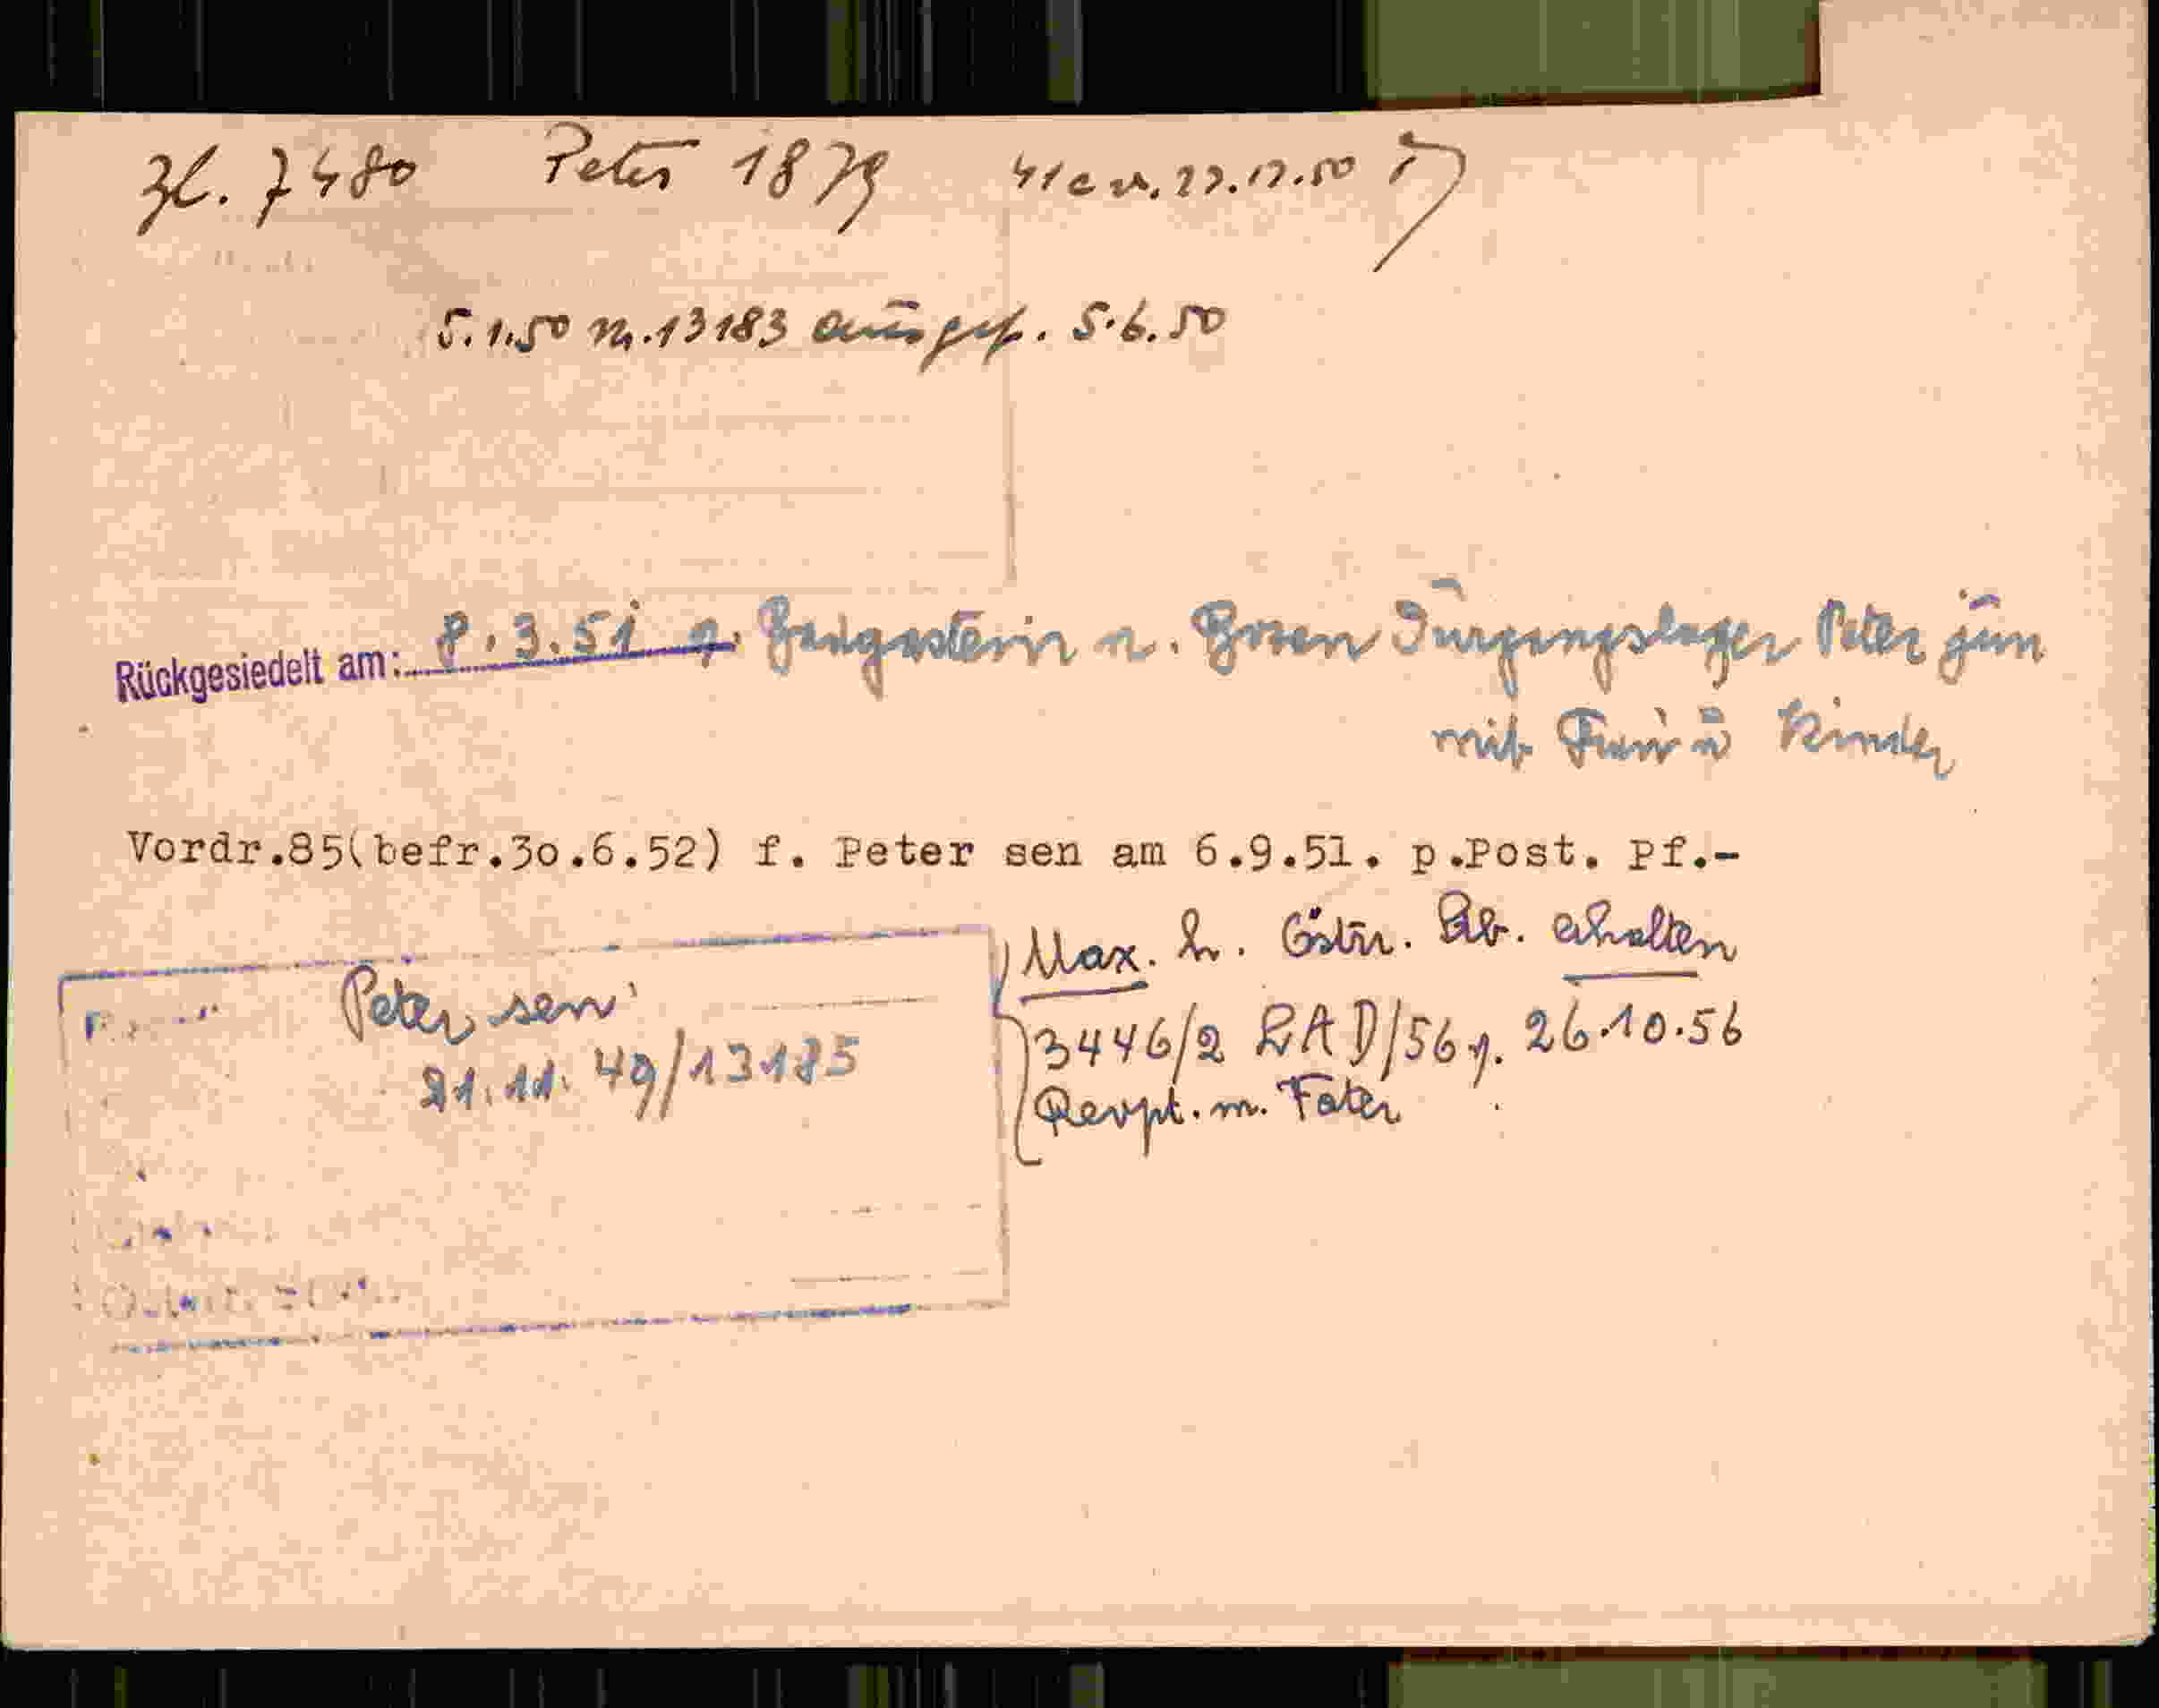 Zl. 7480 Peter 1879 41c v. 22.12.50
5.1.50 Nr. 13183 ausgef. 5.6.50
Rückgesiedelt am: 8.3.51 Peter jun
mit Frau u Kinder
Vordr.85(befr.30.6.52) f. Peter sen am 6.9.51. p.Post. Pf.-
Max. h. Östr. Stb. erhalten
Peter sen
3446/2 LAD/56 v. 26.10.56
21.11.49/13185
Revpt. m. Fater